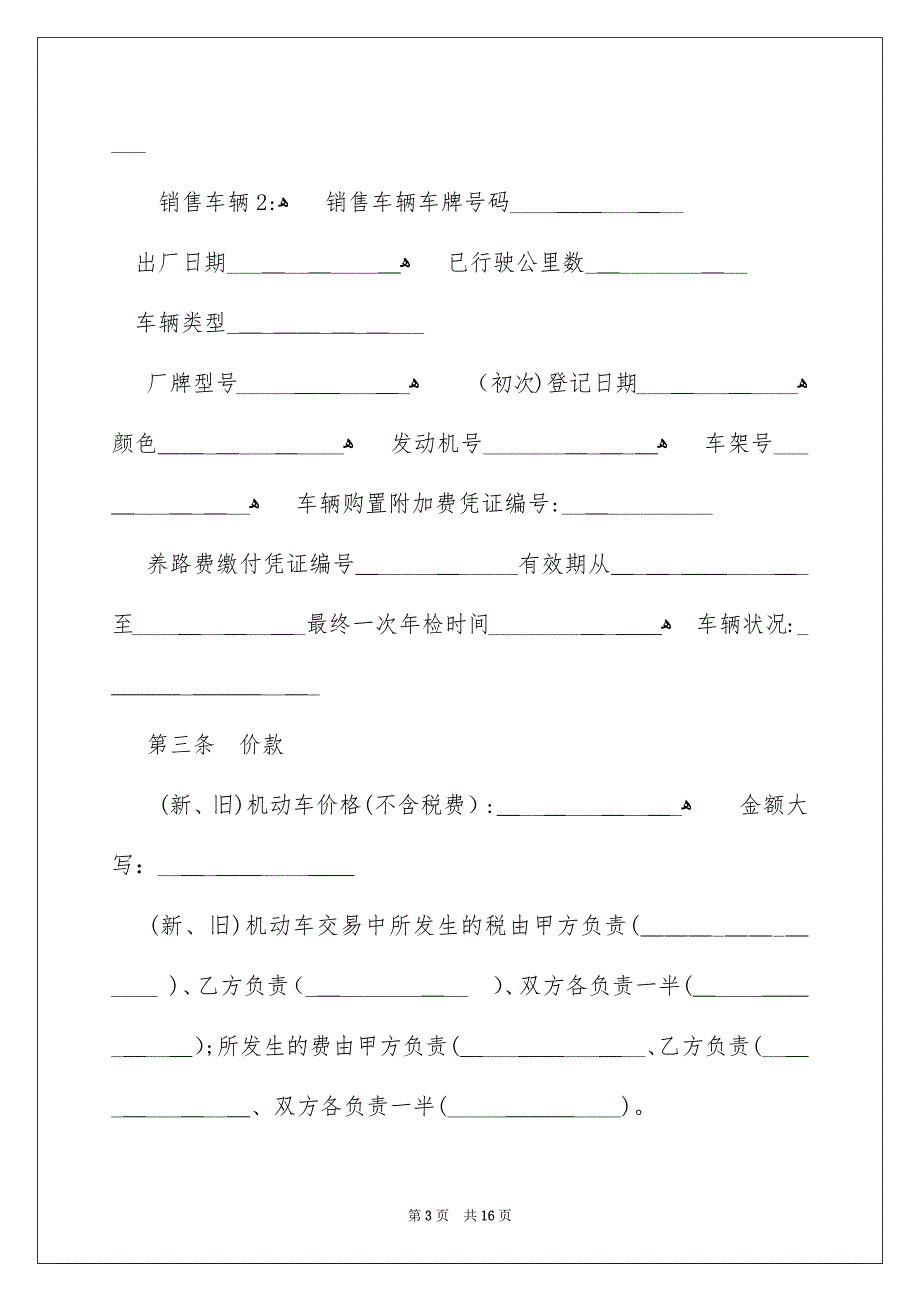 ___
销售车辆2:ﻫ 销售车辆车牌号码_______________
出厂日期_______________ﻫ 已行驶公里数______________
车辆类型_________________
厂牌型号_______________ﻫ （初次)登记日期______________ﻫ
颜色________________ﻫ 发动机号_______________ﻫ 车架号___
____________ﻫ 车辆购置附加费凭证编号:_____________
养路费缴付凭证编号______________有效期从_________________
至_______________最终一次年检时间_______________ﻫ 车辆状况:_
__________________
第三条 价款
(新、旧)机动车价格(不含税费）:________________ﻫ 金额大
写：_________________
(新、旧)机动车交易中所发生的税由甲方负责(______________
____ )、乙方负责（______________ ）、双方各负责一半(__________
_______);所发生的费由甲方负责(________________、乙方负责(____
____________、双方各负责一半(_______________)。
第 3 页 共 16 页